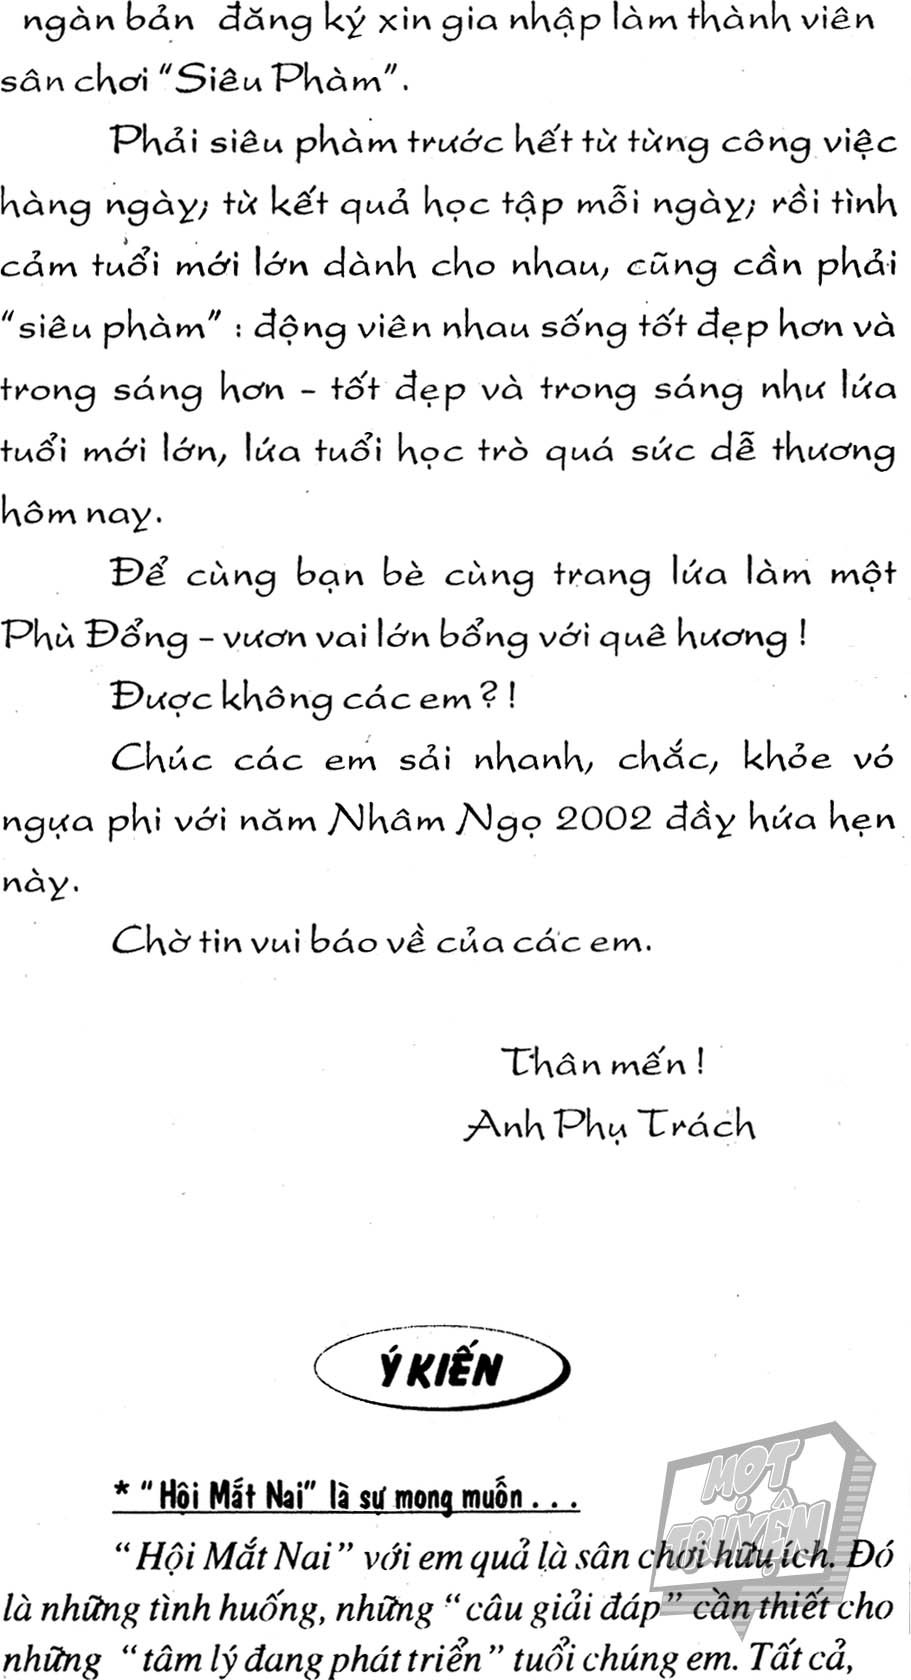 ngàn bản đăng ký xin gia nhập làm thành viên
sân chơi “Siêu Phàm”.
Phải siêu phàm trước hết từ từng công việc
hàng ngày; từ kết quả học tập mỗi ngày; rồi tình
cảm tuổi mới lớn dành cho nhau, cũng cần phải
“siêu phàm” : động viên nhau sống tốt đẹp hơn và
trong sáng hơn - tốt đẹp và trong sáng như lứa
tuổi mới lớn, lứa tuổi học trò quá sức dễ thương
hôm nay.
Để cùng bạn bè cùng trang lứa làm một
Phù Đổng - vươn vai lớn bổng với quê hương !
Được không các em ? !
Chúc các em sải nhanh, chắc, khỏe vó
ngựa phi với năm Nhâm Ngọ 2002 đầy hứa hẹn
này.
Chờ tin vui báo về của các em.
Thân mến !
Anh Phụ Trách
Ý KIẾN
* “Hội Mắt Nai” là sự mong muốn . . .
“Hội Mắt Nai” với em quả là sân chơi hữu ích. Đó
là những tình huống, những “câu giải đáp” cần thiết cho
những “tâm lý đang phát triển” tuổi chúng em. Tất cả,
MỌT
TRUYỆN